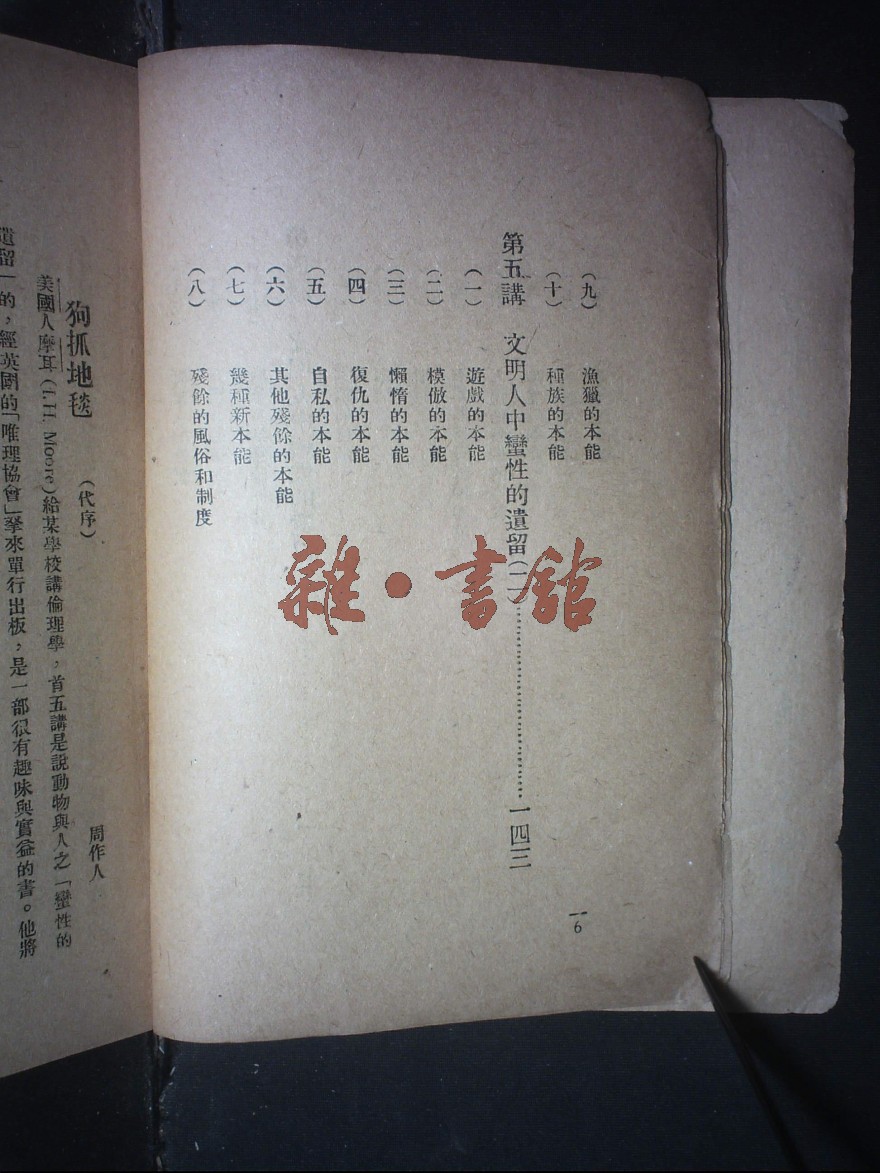 （九）　漁獵的本能
（十）　種族的本能
第五講　文明人中蠻性的遺留（二）……………………一四三
（一）　遊戲的本能
（二）　模倣的本能
（三）　懶惰的本能
（四）　復仇的本能
（五）　自私的本能
（六）　其他殘餘的本能
（七）　幾種新本能
（八）　殘餘的風俗和制度
6
雜·書館
狗抓地毯　（代序）
周作人
美國人摩耳（J. H. Moore）給某學校講倫理學，首五講是說動物與人之「蠻性的
遺留」的，經英國的「唯理協會」拏來單行出板，是一部很有趣味與實益的書。他將